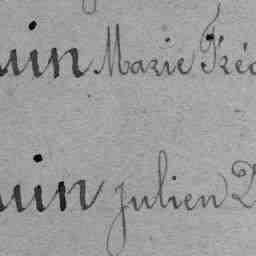 uin Marie Fréd
uin Julien